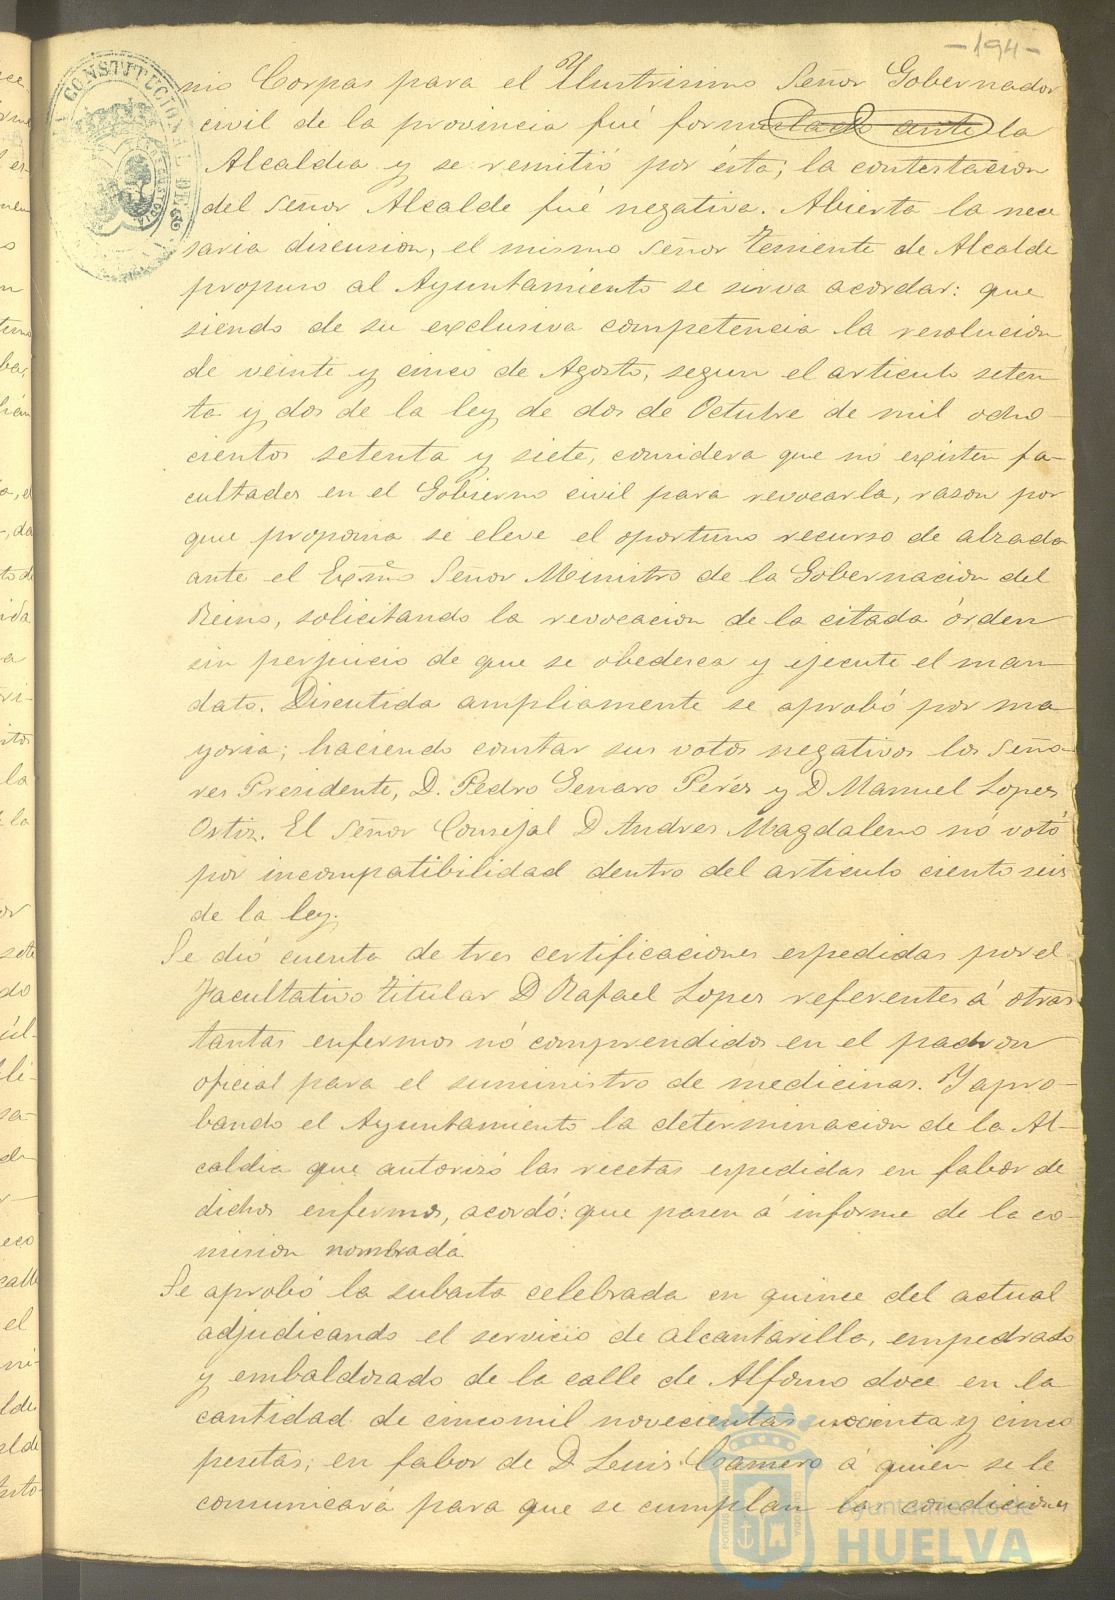 -194-
nio Corpas para el Ylustrisimo Señor Gobernador
civil de la provincia fué formulado ante la
Alcaldia y se remitió por ésta; la contestacion
del Señor Alcalde fué negativa. Abierta la nece
saria discusion, el mismo Señor teniente de Alcalde
propuso al Ayuntamiento se sirva acordar: que
siendo de su exclusiva competencia la resolucion
de veinte y cinco de Agosto, segun el articulo seten
ta y dos de la ley de dos de Octubre de mil ocho-
cientos setenta y siete, considera que nó existen fa-
cultades en el Gobierno civil para revocarla, razon por
que proponia se eleve el oportuno recurso de alzada
ante el Exsmo Señor Ministro de la Gobernacion del
Reino, solicitando la revocacion de la citada órden
sin perjuicio de que se obedesca y ejecute el man-
dato. Discutida ampliamente se aprobó por ma
yoria; haciendo constar sus votos negativos los Seño-
res Presidente, D. Pedro Genaro Perés y D Manuel Lopes
Ortiz. El Señor Consejal D Andres Magdaleno nó votó
por incompatibilidad dentro del articulo ciento seis
de la ley.
Se dió cuenta de tres certificaciones espedidas por el
Facultativo titular D Rafael Lopes referentes á otras
tantas enfermos nó comprendidos en el padron
oficial para el suministro de medicinas. Y apro-
bando el Ayuntamiento la determinacion de la Al-
caldia que autorizó las recetas espedidas en fabor de
dichos enfermos, acordó: que pasen á informe de la co-
mision nombrada
Se aprobó la subasta celebrada en quince del actual
adjudicando el servicio de alcantarilla, empedrado
y embaldosado de la calle de Alfonso doce en la
cantidad de cinco mil novecientas y cinco
pesetas; en fabor de D Luis Camero á quien se le
comunicará para que se cumplan las condiciones
CONSTITUCIONAL DE
Ayuntamiento de
HUELVA